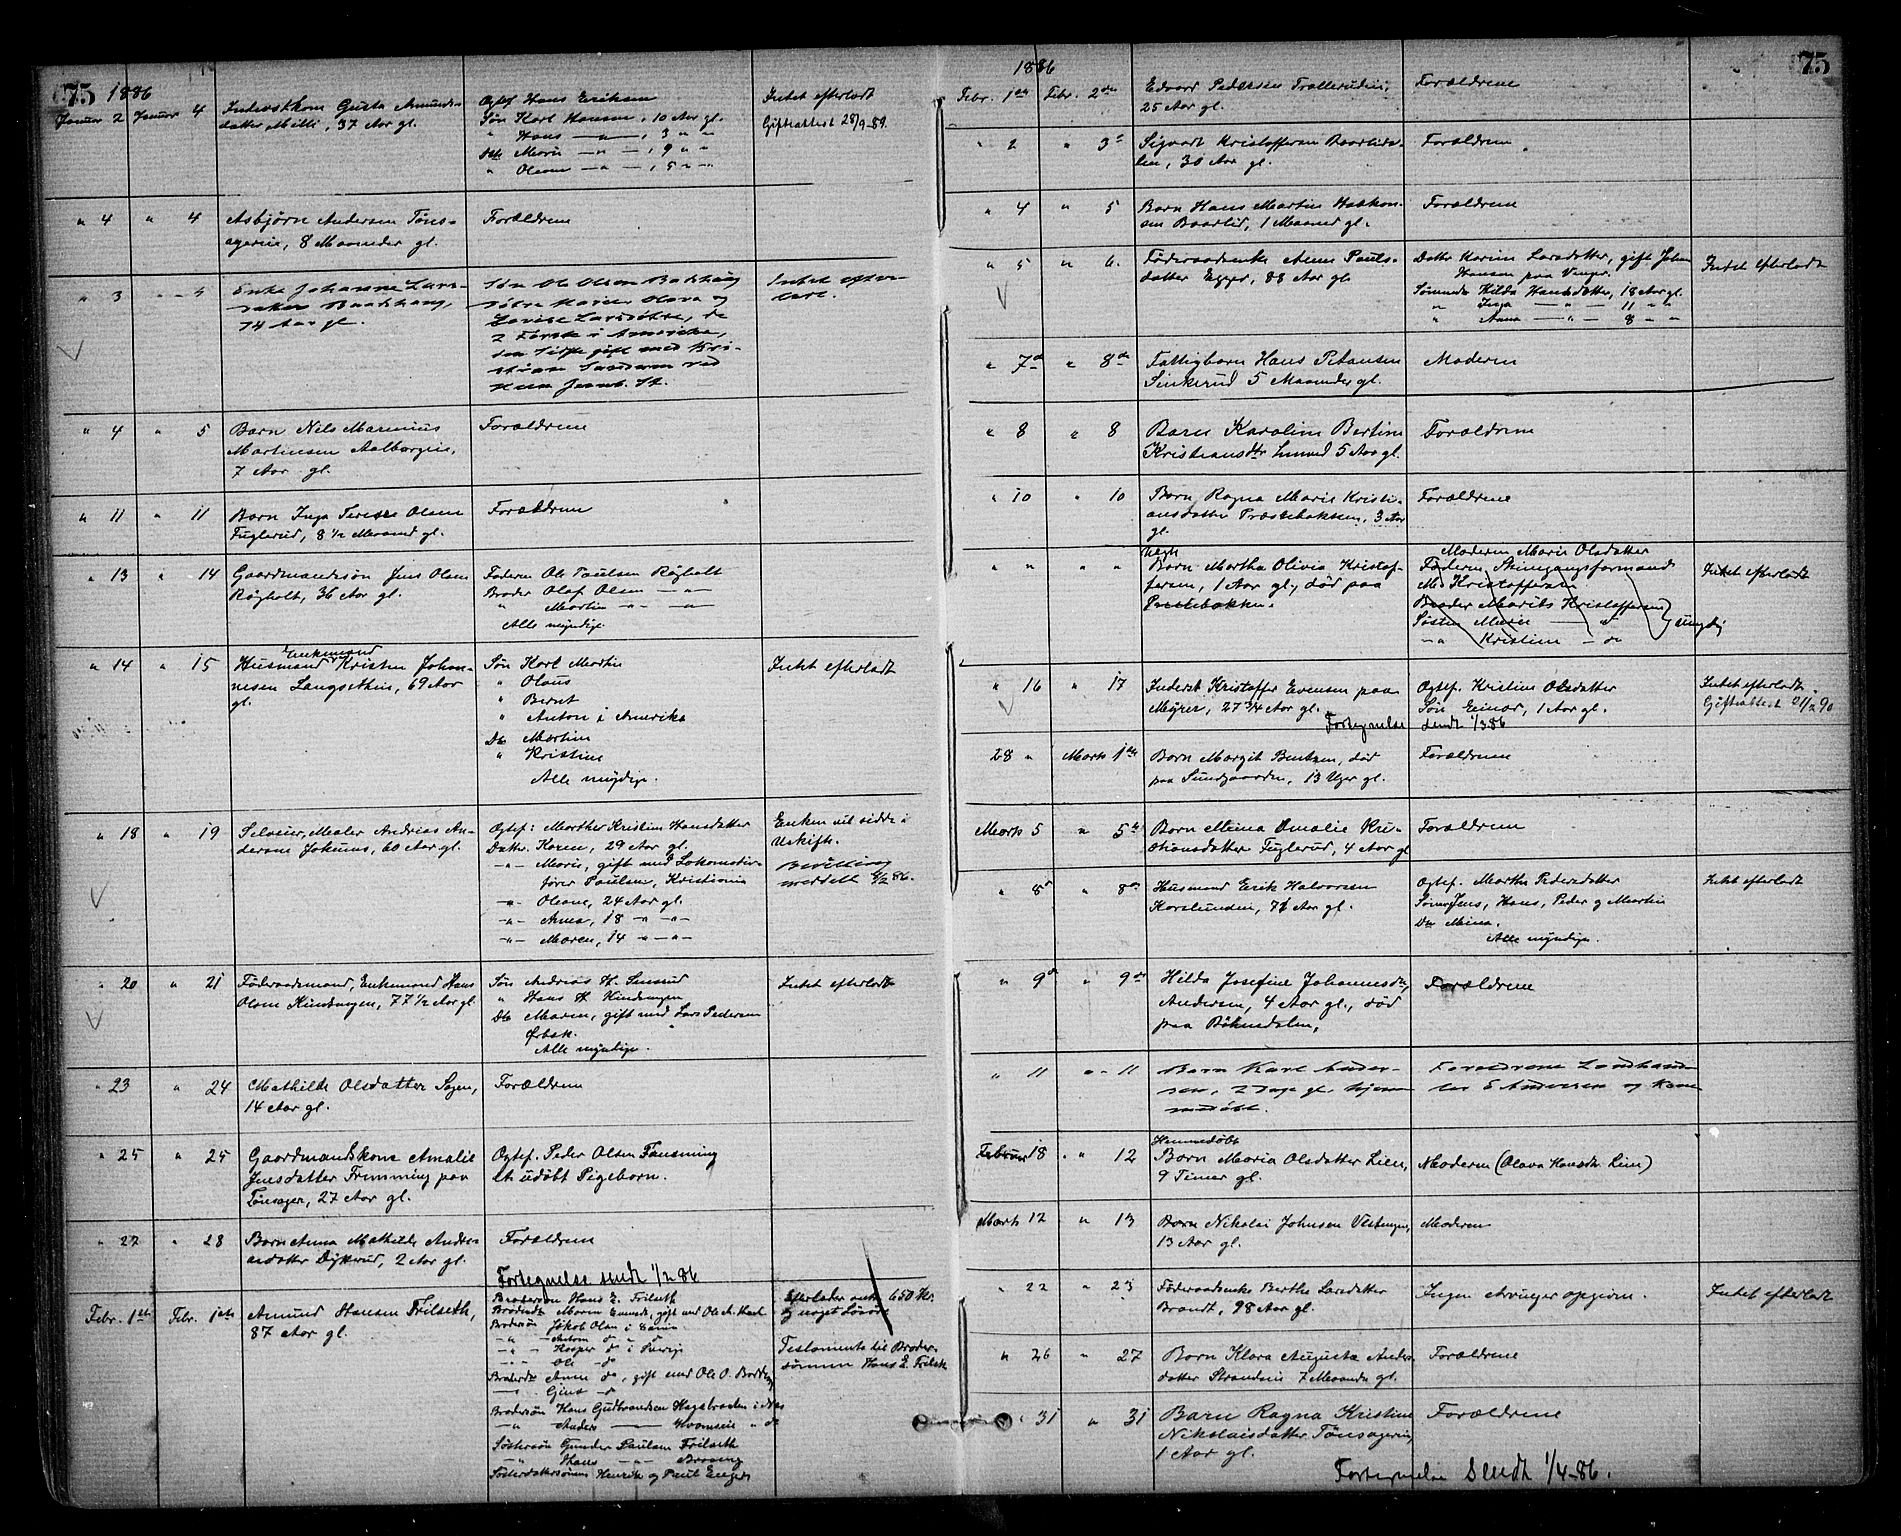 75 1886
Januar 2 Januar 4 Inderstkone Gusta Amunds-
datter Melli, 37 Aar gl.
Ogtef Hans Eriksen
Søn Karl Hansen, 10 Aar gl.
" Hans —"—, 3 " "
Dtr Marie —"—, 9 " "
" Oleane —"—, 5 " "
Intet efterladt
Giftiattest 28/9-89.
" 4 " 4 Asbjørn Andersen Tøns-
agereie, 8 Maaneder gl.
Forældrene
" 3 " 4 Enke Johanne Lars-
74 Aar gl.
Søn Ole Olsen
2 første i Amerika,
Intet efter-
ladt.
" 4 " 5 Barn Nils Marinius
Martinsen Aalborgeie,
7 Aar gl.
Forældrene
" 11 " 11 Barn Inga Terese Olsen
Fuglerud, 8 1/2 Maaned gl.
Forældrene
" 13 " 14 Gaardmandssøn Jens Olsen
Røgholt, 36 Aar gl.
Faderen Ole Paulsen Røgholt
Broder Olaf Olsen —"—
" Martin —"— —"—
Alle myndige.
" 14 " 15 Enkemand
Husmand Kristen Johan-
nesen Langsetheie, 69 Aar
gl.
Søn Karl Martin
" Olaus
" Bernt
" Anton i Amerika
Dtr Martine
" Kristine
Alle myndige.
Intet efterladt
" 18 " 19 Selveier, Maler Andreas An-
dersen Jokums, 60 Aar gl.
Ogtef: Marthe Kristine Hansdatter
Datter. Karen, 29 Aar gl.
—"— Marie, gift med Lokomotiv-
fører Paulsen, Kristiania
—"— Oleane, 24 Aar gl.
—"— Anna, 18 —"—"—
—"— Maren, 14 —"—"—
Enken vil sidde i
Uskifte.
Bevilling
meddelt 4/2 86.
" 20 " 21 Føderaadsmand, Enkemand Hans
Olsen Kindsengen, 77 1/2 Aar gl
Søn Andreas H.
" Hans H. Kindsengen
Dtr Maren, gift med Lars Pedersen
Ørbæk.
Alle myndige.
Intet efterladt
" 23 " 24 Mathilde Olsdatter Sagen,
14 Aar gl.
Forældrene
" 25 " 25 Gaardmandskone Amalie
Jensdatter Fremming paa
Tønsager, 27 Aar gl.
Ogtef. Peder Olsen
et udøbt Pigebarn.
" 27 " 28 Barn Anna Mathilde Andre-
asdatter Dystrud, 2 Aar gl.
Forældrene
Fortegnelse sendt 1/2 86
Febr. 1ste Febr. 1ste Amund Hansen Frilseth,
87 Aar gl.
Brodersøn Hans E. Frilseth
Brodersøn Jakob Olsen i
—"— Anton
—"— Kasper do i Sverige
—"— Ole do
Broderdtr Anne do, gift med Ole O.
Gina do
Brodersøn Hans Gudbrandsen
—"— Anders
Søstersøn Gunder Paulsen Frilseth
—"— Hans —"—
Søsterdattersønner Henrik og Paul
Efterlader omk. 650 Kr.
og noget Løsøre
Testamente til Broder-
sønnen Hans E. Frilseth
1886 75
Febr. 1ste Febr. 2den Edvard Pedersen Trollerudeie,
25 Aar gl.
Forældrene
" 2 " 3 Sigvart Kristoffersen Baarlids-
eie, 30 Aar gl.
Forældrene
" 4 " 5 Barn Hans Martin Haakon-
sen Baarlid, 1 Maaned gl.
Forældrene
" 5 " 6. Føderaadsenke Anne Pauls-
datter Egger, 88 Aar gl
Dattr Karine Larsdatter, gift Johan
Hansen paa
Hilda Hansdatter, 18 Aar gl.
" Inga —"— 11 " "
" Anna —"— 8 " "
Intet efterladt
" 7de " 8de Fattigbarn Hans Petersen
Sinkerud 5 Maaneder gl.
Moderen
" 8 " 8 Barn Karoline Bertine
Kristiansdtr 5 Aar gl.
Forældrene
" 10 " 10 Barn Ragna Marie Kristi-
ansdatter Præstebakken, 3 Aar
gl.
Forældrene
" " " Uægte
Barn Martha Olivia Kristof-
fersen, 1 Aar gl., død paa
Prestebakken.
Moderen Marie Olsdatter
Faderen Stengangsformand
M. Kristoffersen
Broder Marits Kristoffersen
Søsten Marie —"—
—"— Kristine —"—
Intet efterladt
" 16 " 17 Inderst Kristoffer Evensen paa
Myrer, 27 3/4 Aar gl.
Ogtef. Kristine Olsdatter
Søn Einar, 1 Aar gl.
Intet efterladt.
Giftiattest 21/2 90
Fortegnelse sendt 1/3 86
28 " Marts 1ste Barn Margit Bentsen, død
paa Sundgaarden, 13 Uger gl.
Forældrene
Marts 5 " 5te Barn Mina Amalie Kri-
stiansdatter Fuglerud, 4 Aar gl
Forældrene
" 8de " 8de Husmand Erik Halvorsen
Korslunden, 76 Aar gl.
Ogtef. Marthe Pedersdatter
Sønner Jens, Hans, Peder og Martin
Dtr Mina.
Alle myndige.
Intet efterladt
" 9de " 9de Hilda Josefine Johannesdtr
Andersen, 4 Aar gl., død
paa Bøhnsdalen.
Forældrene
" 11 " 11 Barn Karl Ander-
sen, 2 Dage gl. hjem-
medøbt.
Forældrene Landhand-
ler E Andersen og Kone
Februar 18 " 12 Hjemmedøbt
Barn Maria Olsdatter Lien,
9 Timer gl.
Moderen (Olava Hansdtr Lien)
Marts 12 " 13 Barn Nikolai Johnsen
13 Aar gl.
Moderen
" 22 " 23 Føderaadsenke Berthe Larsdatter
Brandt, 98 Aar gl.
Ingen Arvinger opgivne.
Intet efterladt
" 26 " 27 Barn Klara Augusta Anders-
datter Strandeie 7 Maaneder gl.
Forældrene
" 31 " 31 Barn Ragna Kristine
Nikolaisdatter Tønsagereie,
1 Aar gl.
Forældrene
Fortegnelse Sendt 1/4-86.